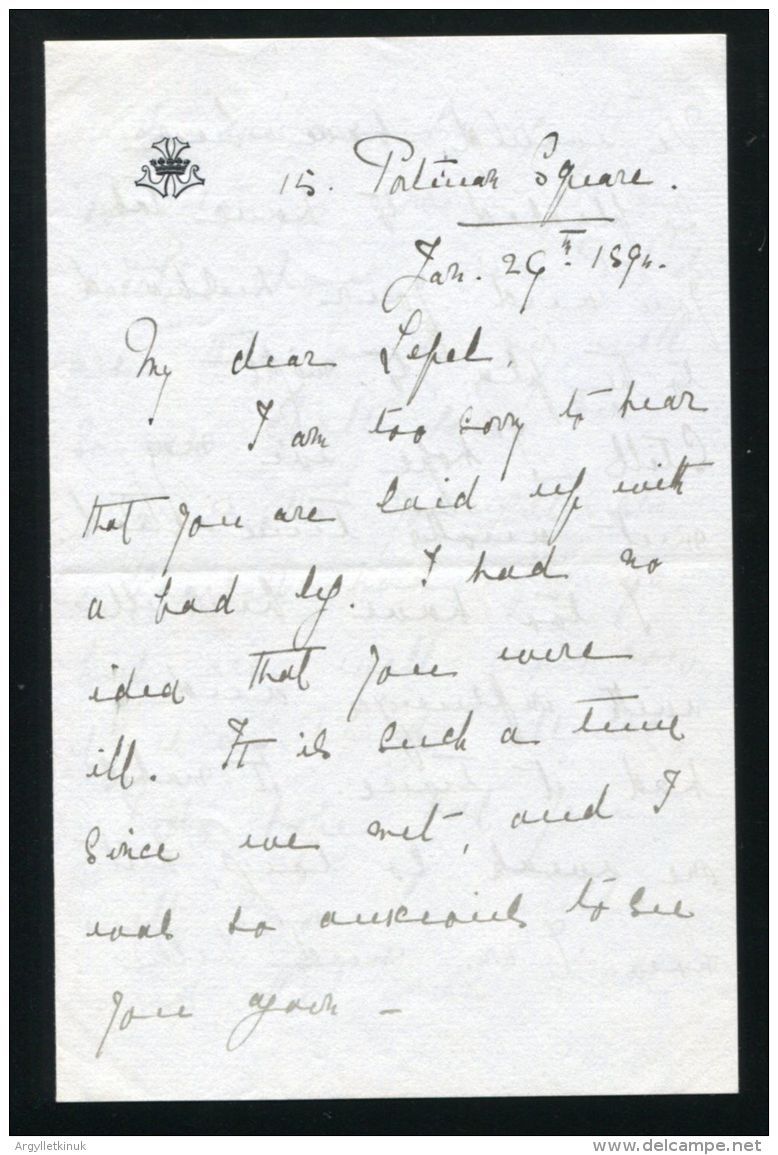 15. Portman Square.
Jan. 29th. 1894.
My dear Lepel.
I am too sorry to hear
that you are laid up with
a bad leg. I had no
idea that you were
ill. It is such a time
since we met, and I
was so anxious to see
you again –
Argylletkinuk
delcampe.net